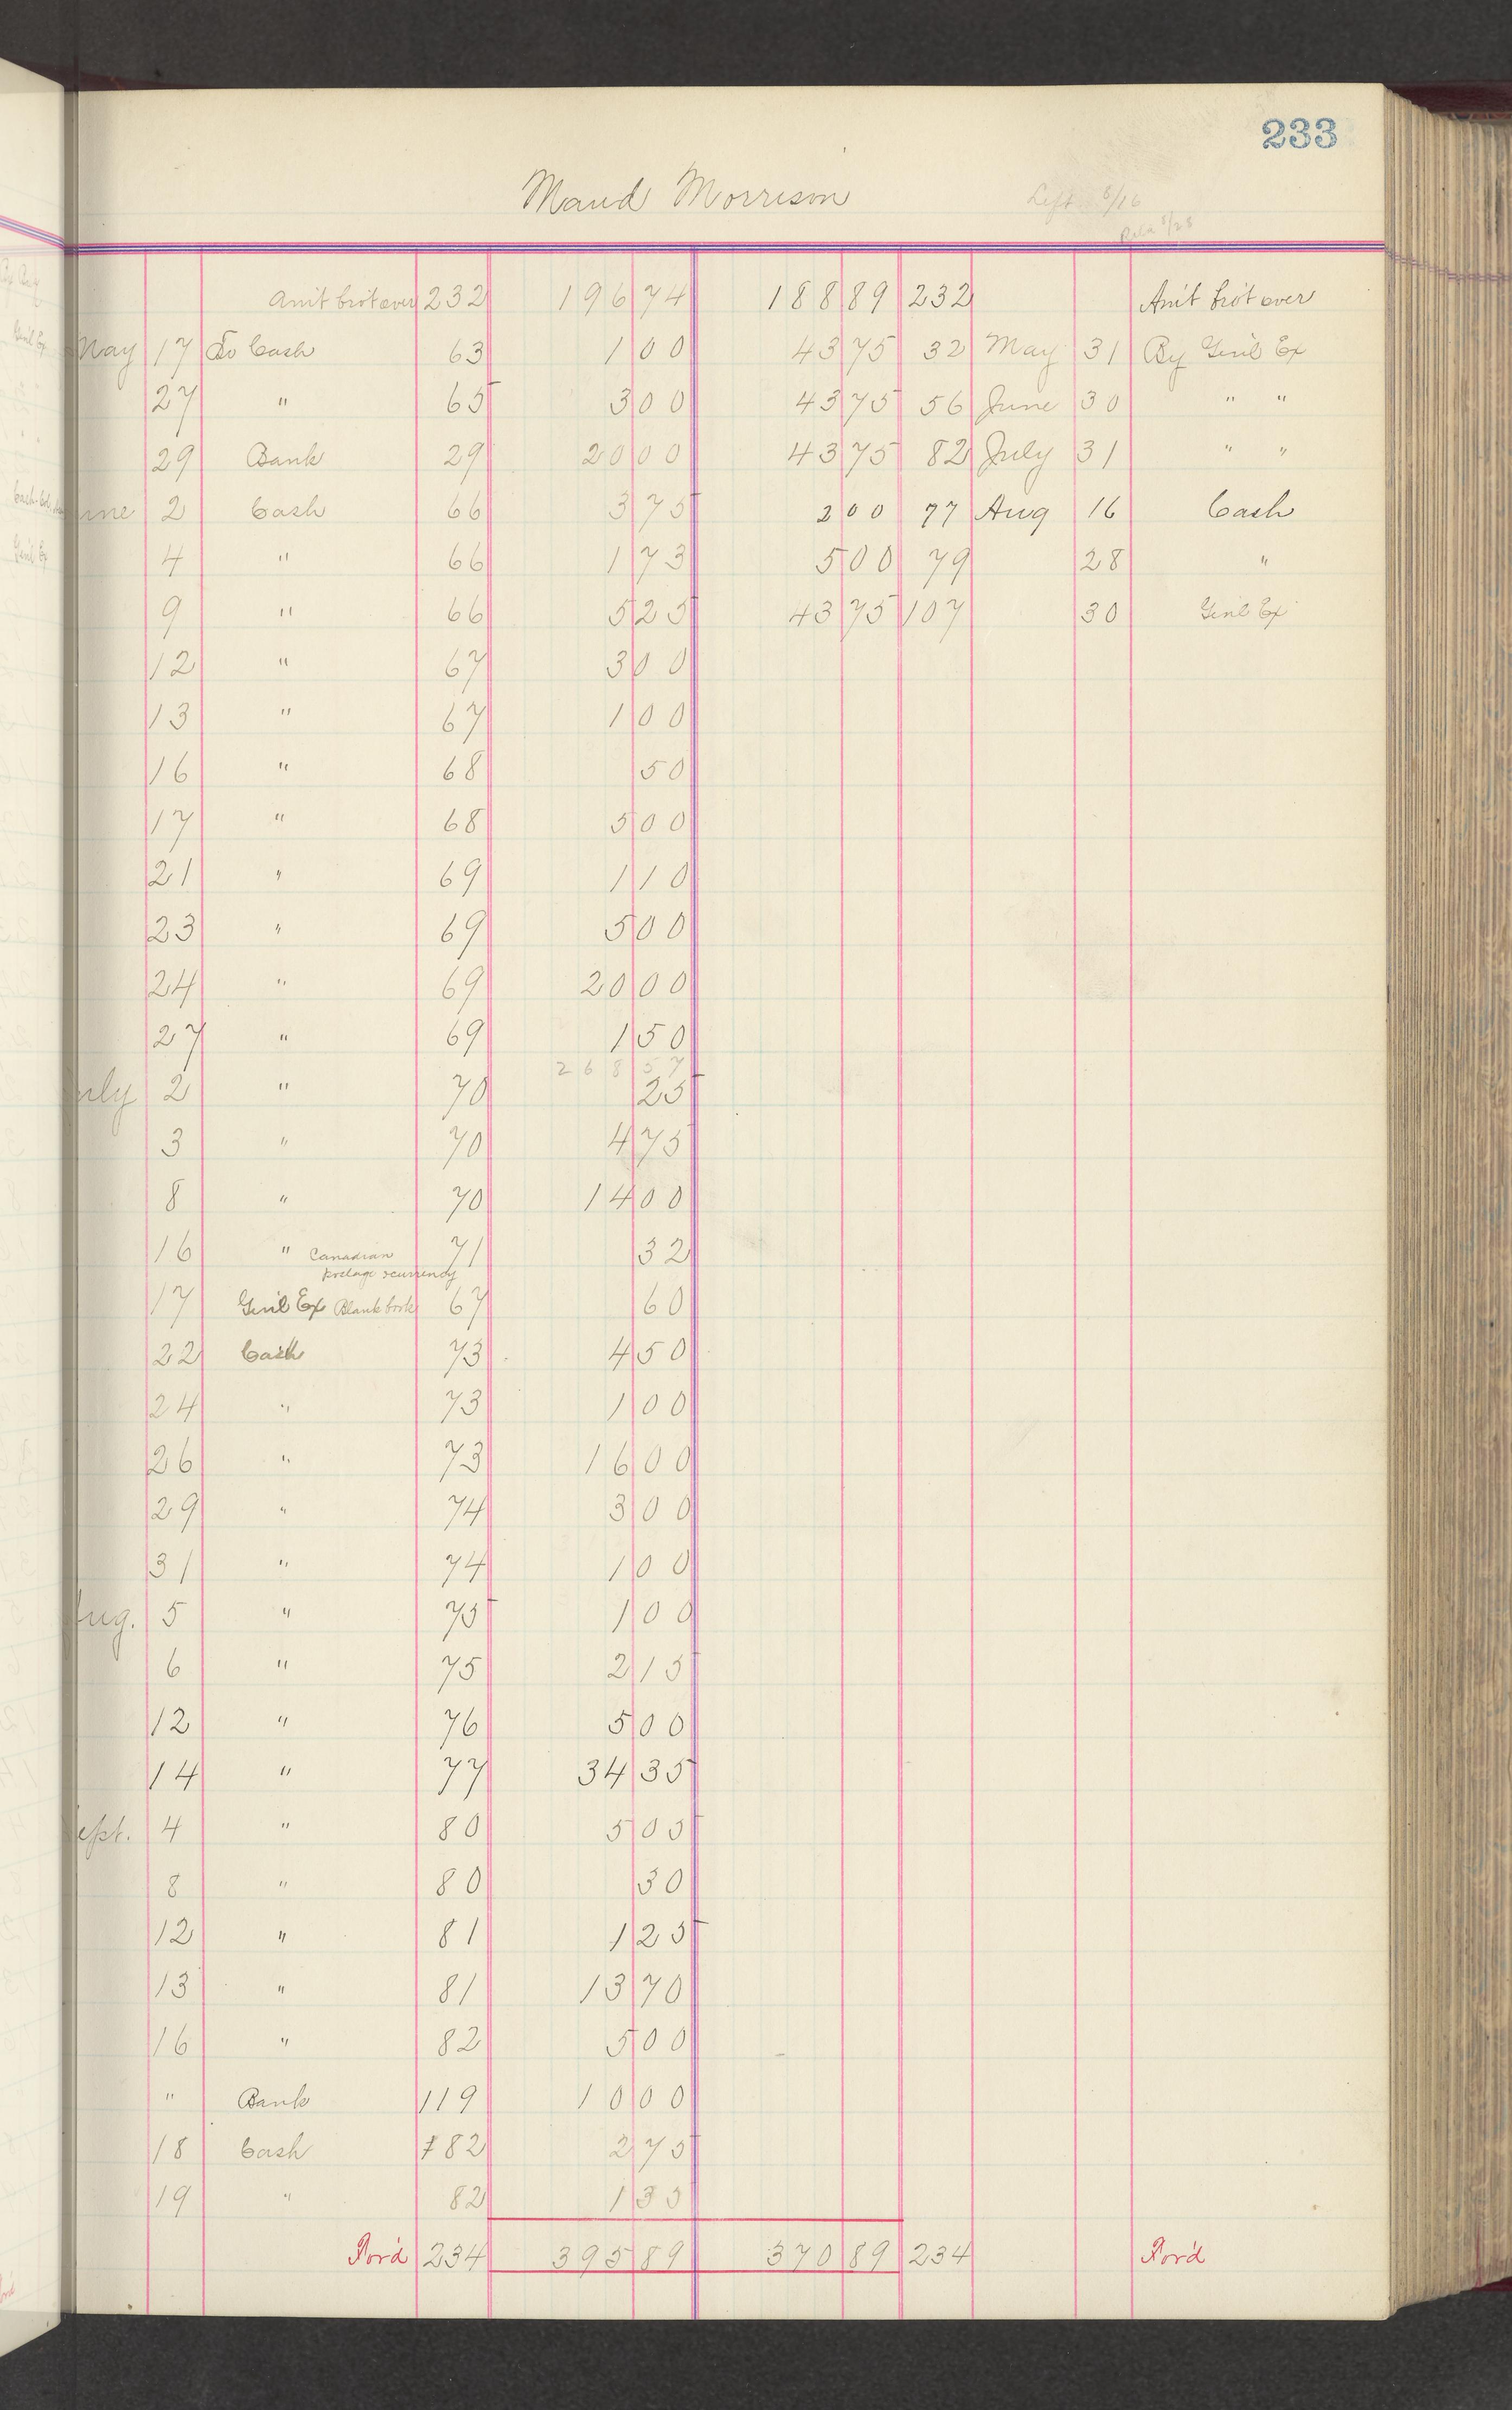 233
Maud Morrison
Left 8/16
8/28
Am't bro't over 232 196 74 188 89 232 Am't bro't over
May 17 To Cash 63 1 00 43 75 32 May 31 By Gen'l Ex
27 " 65 3 00 43 75 56 June 30 " "
29 Bank 29 20 00 43 75 82 July 31 " "
une 2 Cash 66 3 75 2 00 77 Aug 16 Cash
4 " 66 1 73 5 00 79 28 "
9 " 66 5 25 43 75 107 30 Gen'l Ex
12 " 67 3 00
13 " 67 1 00
16 " 68 50
17 " 68 5 00
21 " 69 1 10
23 " 69 5 00
24 " 69 20 00
27 " 69 1 50
268 57
uly 2 " 70 25
3 " 70 4 75
8 " 70 14 00
16 " Canadian 71 32
postage & currency
17 Gen'l Ex Blank book 67 60
22 Cash 73 4 50
24 " 73 1 00
26 " 73 16 00
29 " 74 3 00
31 " 74 1 00
ug. 5 " 75 1 00
6 " 75 2 15
12 " 76 5 00
14 " 77 34 35
ept. 4 " 80 5 05
8 " 80 30
12 " 81 1 25
13 " 81 13 70
16 " 82 5 00
" Bank 119 10 00
18 Cash 82 2 75
19 " 82 1 35
For'd 234 395 89 370 89 234 For'd